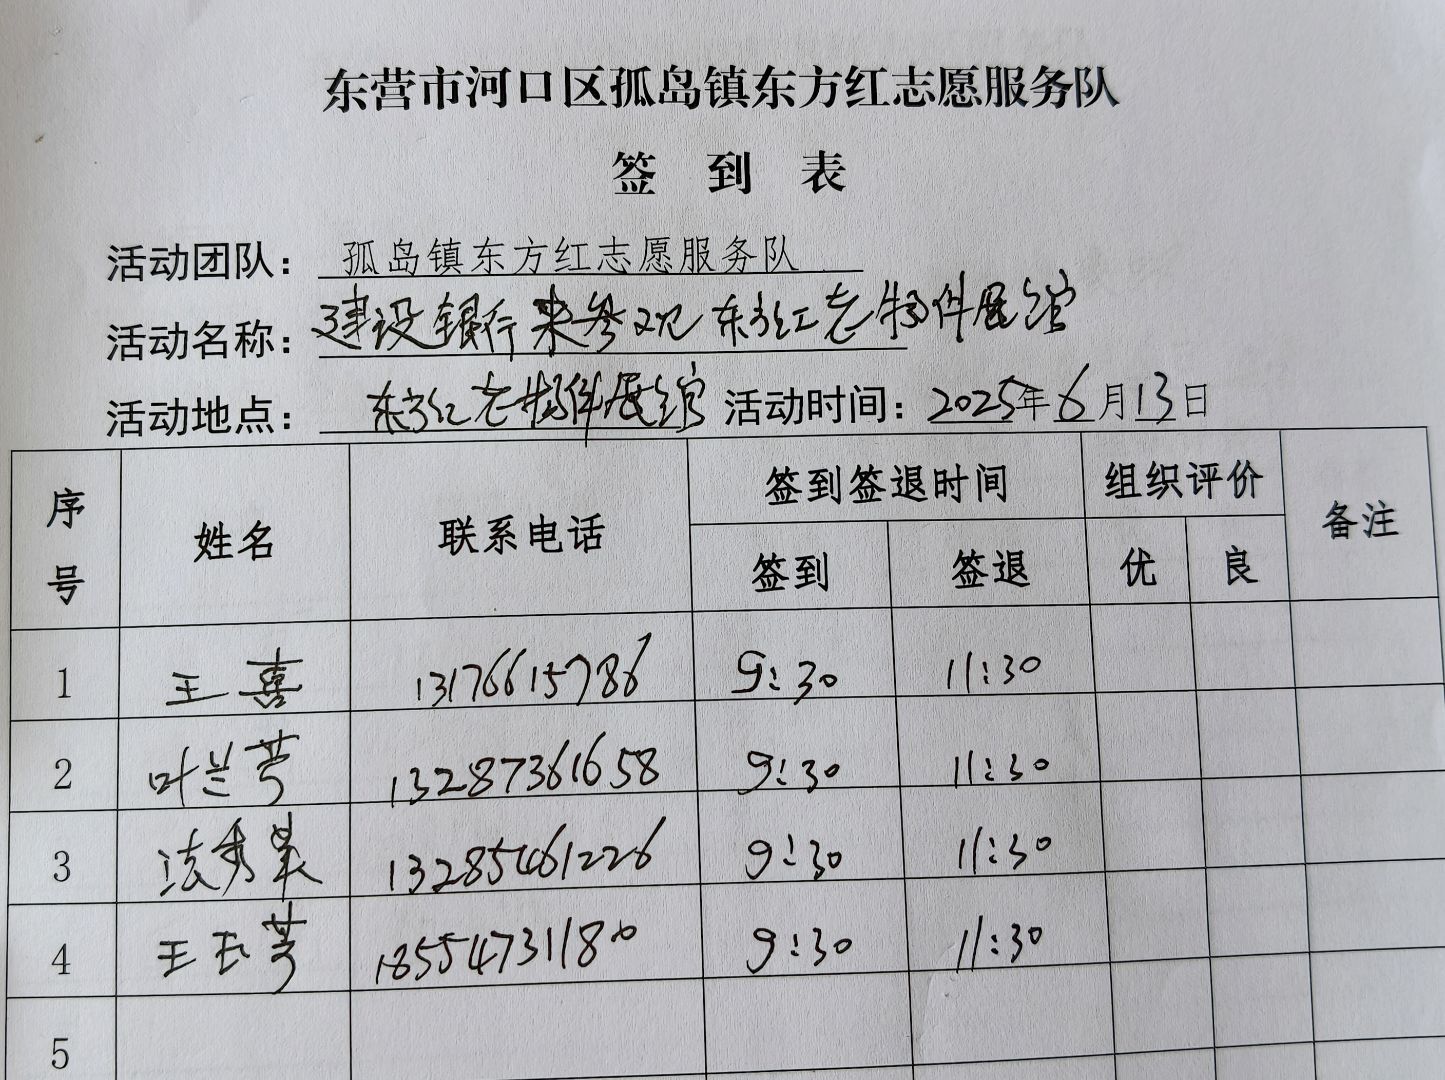 东营市河口区孤岛镇东方红志愿服务队
签 到 表
活动团队：孤岛镇东方红志愿服务队
活动名称：建设银行来参观东方红老物件展馆
活动地点：东方红老物件展馆 活动时间：2025年6月13日
序号 姓名 联系电话 签到签退时间 组织评价 备注
签到 签退 优 良
1 王喜 13176615786 9:30 11:30
2 叶兰芳 13287361658 9:30 11:30
3 法秀 13285461226 9:30 11:30
4 王玉芳 18554731180 9:30 11:30
5